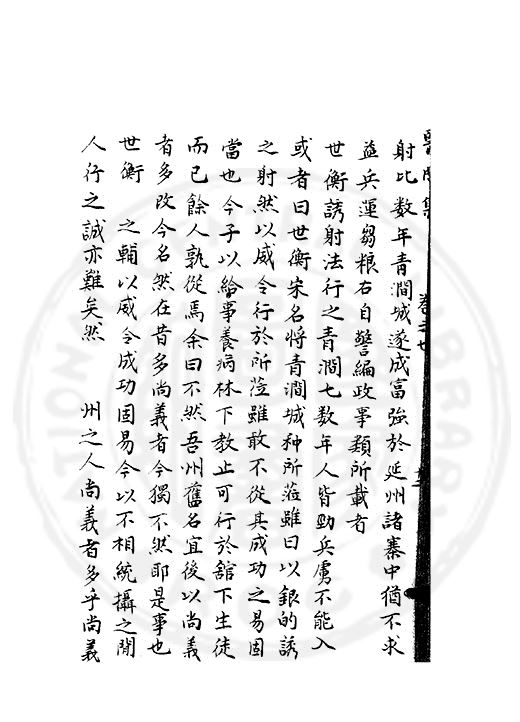 射比数年青澗城遂成富強於延州諸寨中獨不求
益兵運芻粮右自警編政事類所載者
世衡誘射法行之青澗七数年人皆勁兵虜不能入
或者曰世衡宋名將青澗城种所蒞雖曰以銀的誘
之射然以威令行於所蒞雖敢不從其成功之易固
當也今子以給事養病林下教止可行於舘下生徒
而已餘人孰從焉余曰不然吾州舊名宜後以尚義
者多改今名然在昔多尚義者今獨不然耶是事也
世衡 之輔以威令成功固易今以不相統攝之閒
人行之誠亦難矣然 州之人尚義者多乎尚義